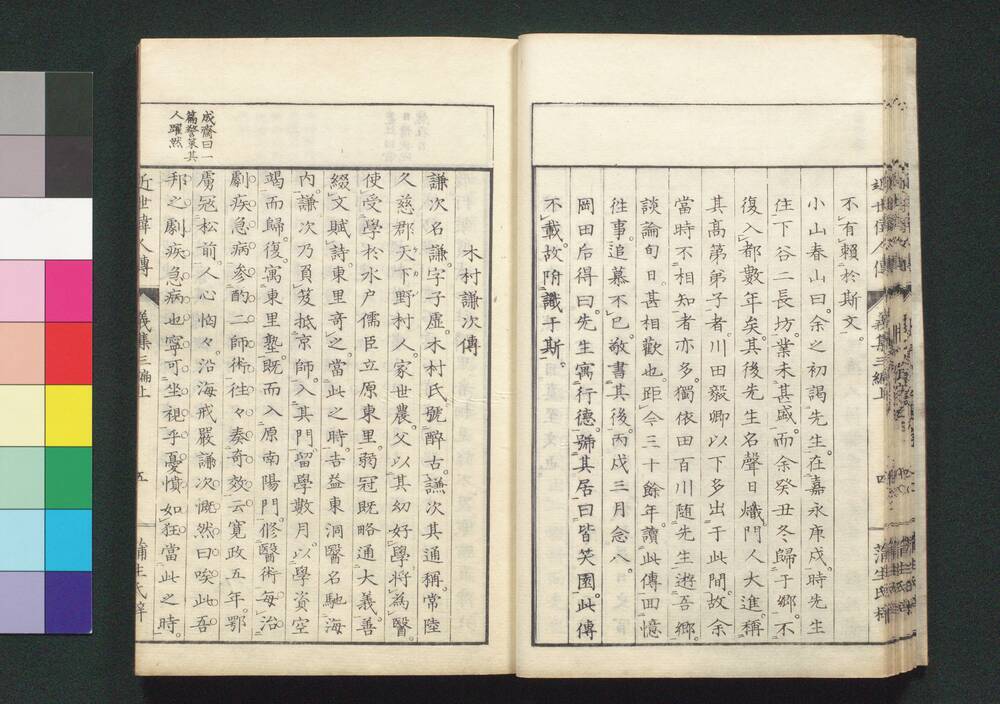 不有賴於斯文。
小山春山曰。余之初謁先生。在嘉永庚戌。時先生
住下谷二長坊。業未甚盛。而余癸丑冬歸于鄉。不
復入都數年矣。其後先生名聲日熾。門人大進。稱
其高第弟子者。川田毅卿以下多出于此間。故余
當時不相知者亦多。獨依田百川隨先生遊吾鄉。
談論旬日。甚相歡也。距今三十餘年。讀此傳回憶
往事。追慕不已。敬書其後。丙戌三月念八。
岡田后得曰。先生寓行德。號其居曰皆笑園。此傳
不載。故附識于斯。
木村謙次傳
謙次名謙。字子虛。木村氏。號醉古。謙次其通稱。常陸
久慈郡天下野村人。家世農。父以其幼好學。將為醫。
使受學於水戶儒臣立原東里。弱冠既略通大義。善
綴文賦詩。東里奇之。當此之時。吉益東洞醫名馳海
內。謙次乃負笈抵京師。入其門。留學數月。以學資空
竭而歸。復寓東里塾。既而入原南陽門。修醫術。每治
劇疾急病。參酌二師術。往々奏奇效云。寬政五年。鄂
虜寇松前。人心恟々。沿海戒嚴。謙次慨然曰。唉此吾
邦之劇疾急病也。寧可坐視乎。憂憤如狂。當此之時。
成齋曰一
篇警策其
人躍然
近世偉人傳
義集三編上
五
蒲生氏梓
義集三編上
四
蒲生氏梓